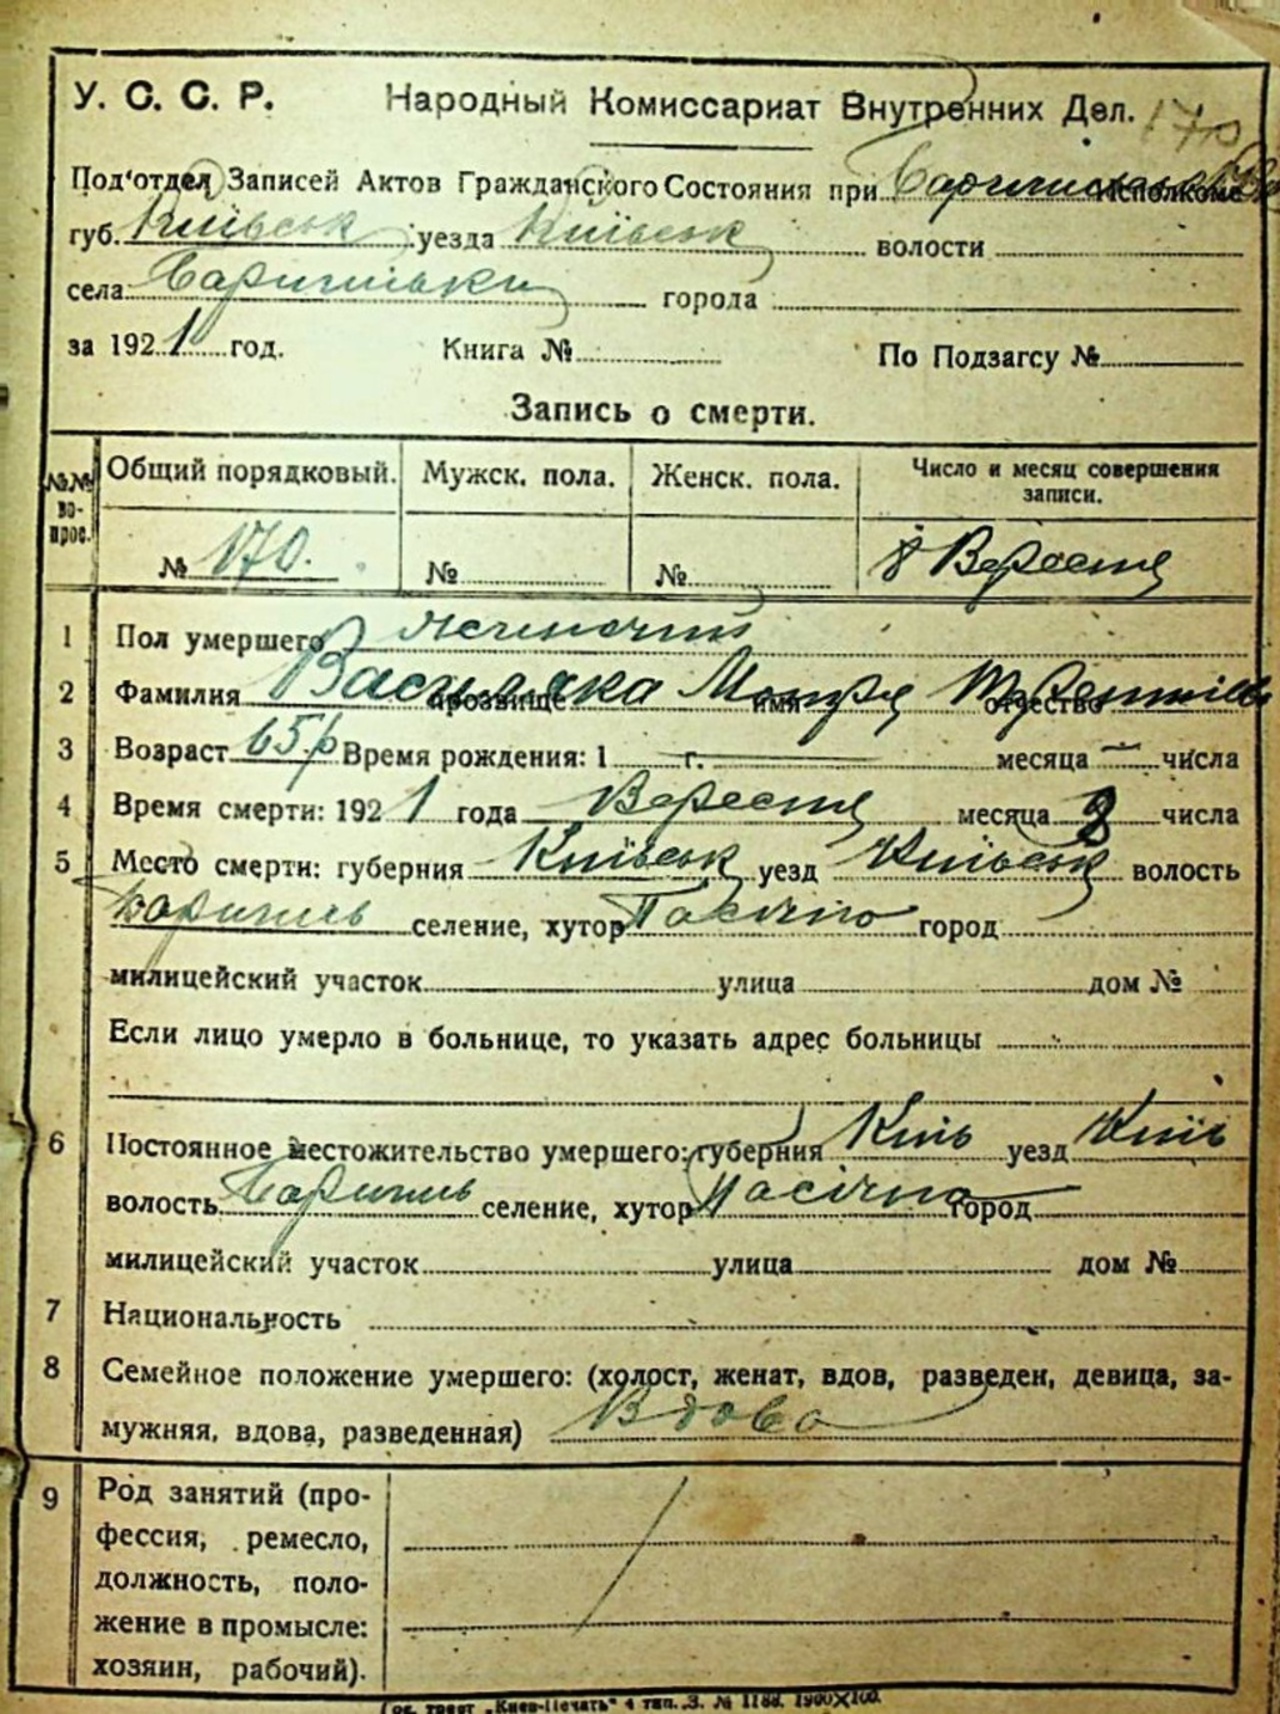 У. С. С. Р. Народный Комиссариат Внутренних Дел. 170
Под'отдел Записей Актов Гражданского Состояния при Исполкоме
губ. Київськ уезда Київськ волости
села города
за 1921 год. Книга № По Подзагсу №
Запись о смерти.
№№ во-прос. Общий порядковый. Мужск. пола. Женск. пола. Число и месяц совершения записи.
№ 170. № № 8 Вересня
1 Пол умершего жіночий
2 Фамилия прозвище имя отчество
3 Возраст 65 р Время рождения: 1 г. месяца числа
4 Время смерти: 1921 года Вересня месяца числа
5 Место смерти: губерния Київськ уезд Київськ волость
селение, хутор Пасічно город
милицейский участок улица дом №
Если лицо умерло в больнице, то указать адрес больницы
6 Постоянное местожительство умершего: губерния Київ уезд Київ
волость селение, хутор Пасічна город
милицейский участок улица дом №
7 Национальность
8 Семейное положение умершего: (холост, женат, вдов, разведен, девица, за-
мужняя, вдова, разведенная) Вдова
9 Род занятий (про-
фессия, ремесло,
должность, поло-
жение в промысле:
хозяин, рабочий).
трест „Киев-Печать" 4 тип. З. № 1188. 1900×100.